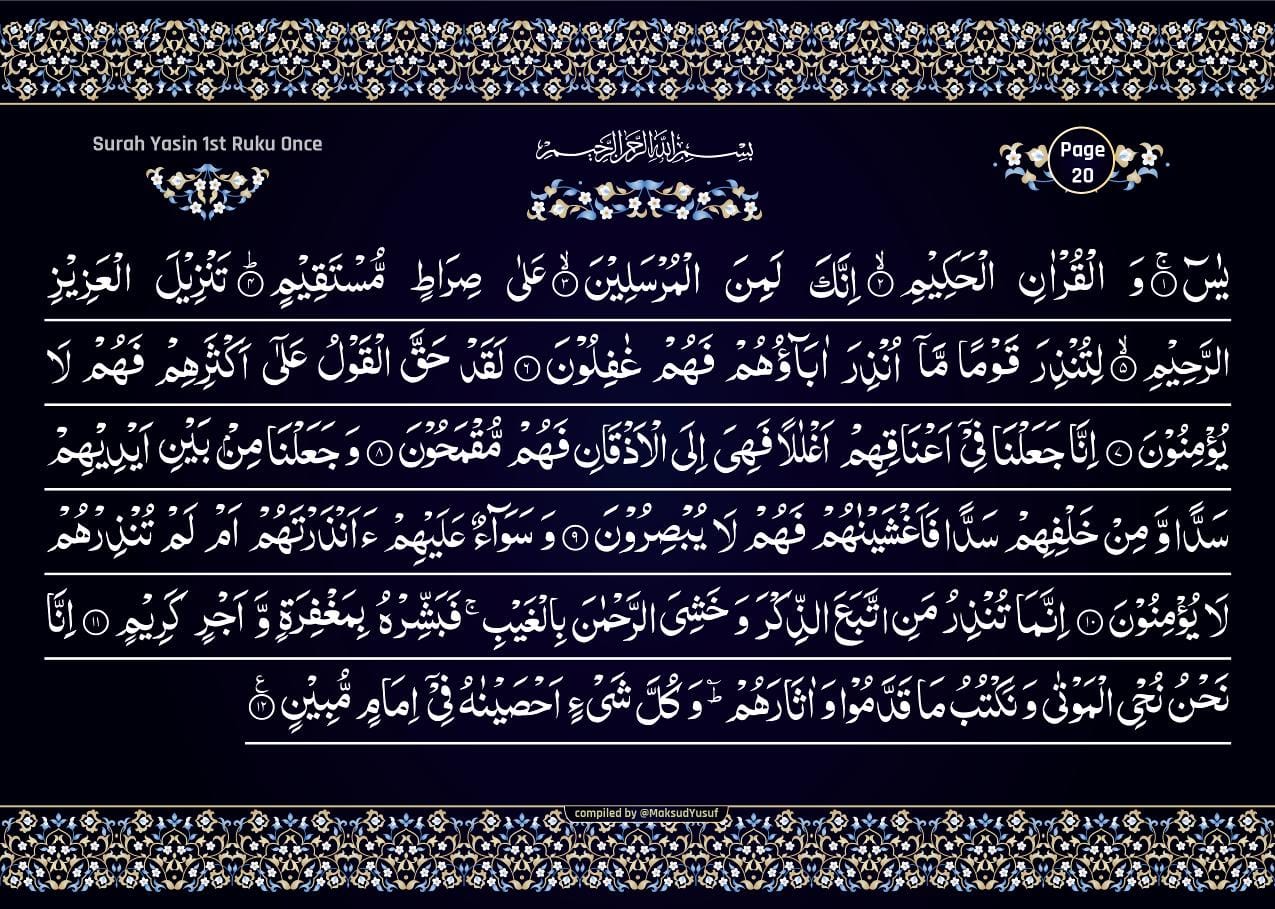 Surah Yasin 1st Ruku Once
بِسْمِ اللّٰهِ الرَّحْمٰنِ الرَّحِيْمِ
Page
20
يٰسٓ ۚ﴿۱﴾ وَ الْقُرْاٰنِ الْحَكِيْمِ ۙ﴿۲﴾ اِنَّكَ لَمِنَ الْمُرْسَلِيْنَ ۙ﴿۳﴾ عَلٰى صِرَاطٍ مُّسْتَقِيْمٍ ؕ﴿۴﴾ تَنْزِيْلَ الْعَزِيْزِ
الرَّحِيْمِ ۙ﴿۵﴾ لِتُنْذِرَ قَوْمًا مَّاۤ اُنْذِرَ اٰبَآؤُهُمْ فَهُمْ غٰفِلُوْنَ ﴿۶﴾ لَقَدْ حَقَّ الْقَوْلُ عَلٰۤى اَكْثَرِهِمْ فَهُمْ لَا
يُؤْمِنُوْنَ ﴿۷﴾ اِنَّا جَعَلْنَا فِيْۤ اَعْنَاقِهِمْ اَغْلٰلًا فَهِيَ اِلَى الْاَذْقَانِ فَهُمْ مُّقْمَحُوْنَ ﴿۸﴾ وَ جَعَلْنَا مِنْۢ بَيْنِ اَيْدِيْهِمْ
سَدًّا وَّ مِنْ خَلْفِهِمْ سَدًّا فَاَغْشَيْنٰهُمْ فَهُمْ لَا يُبْصِرُوْنَ ﴿۹﴾ وَ سَوَآءٌ عَلَيْهِمْ ءَاَنْذَرْتَهُمْ اَمْ لَمْ تُنْذِرْهُمْ
لَا يُؤْمِنُوْنَ ﴿۱۰﴾ اِنَّمَا تُنْذِرُ مَنِ اتَّبَعَ الذِّكْرَ وَ خَشِيَ الرَّحْمٰنَ بِالْغَيْبِ ۚ فَبَشِّرْهُ بِمَغْفِرَةٍ وَّ اَجْرٍ كَرِيْمٍ ﴿۱۱﴾ اِنَّا
نَحْنُ نُحْيِ الْمَوْتٰى وَ نَكْتُبُ مَا قَدَّمُوْا وَ اٰثَارَهُمْ ؕ وَ كُلَّ شَيْءٍ اَحْصَيْنٰهُ فِيْۤ اِمَامٍ مُّبِيْنٍ ﴿۱۲﴾ ع
compiled by @MaksudYusuf